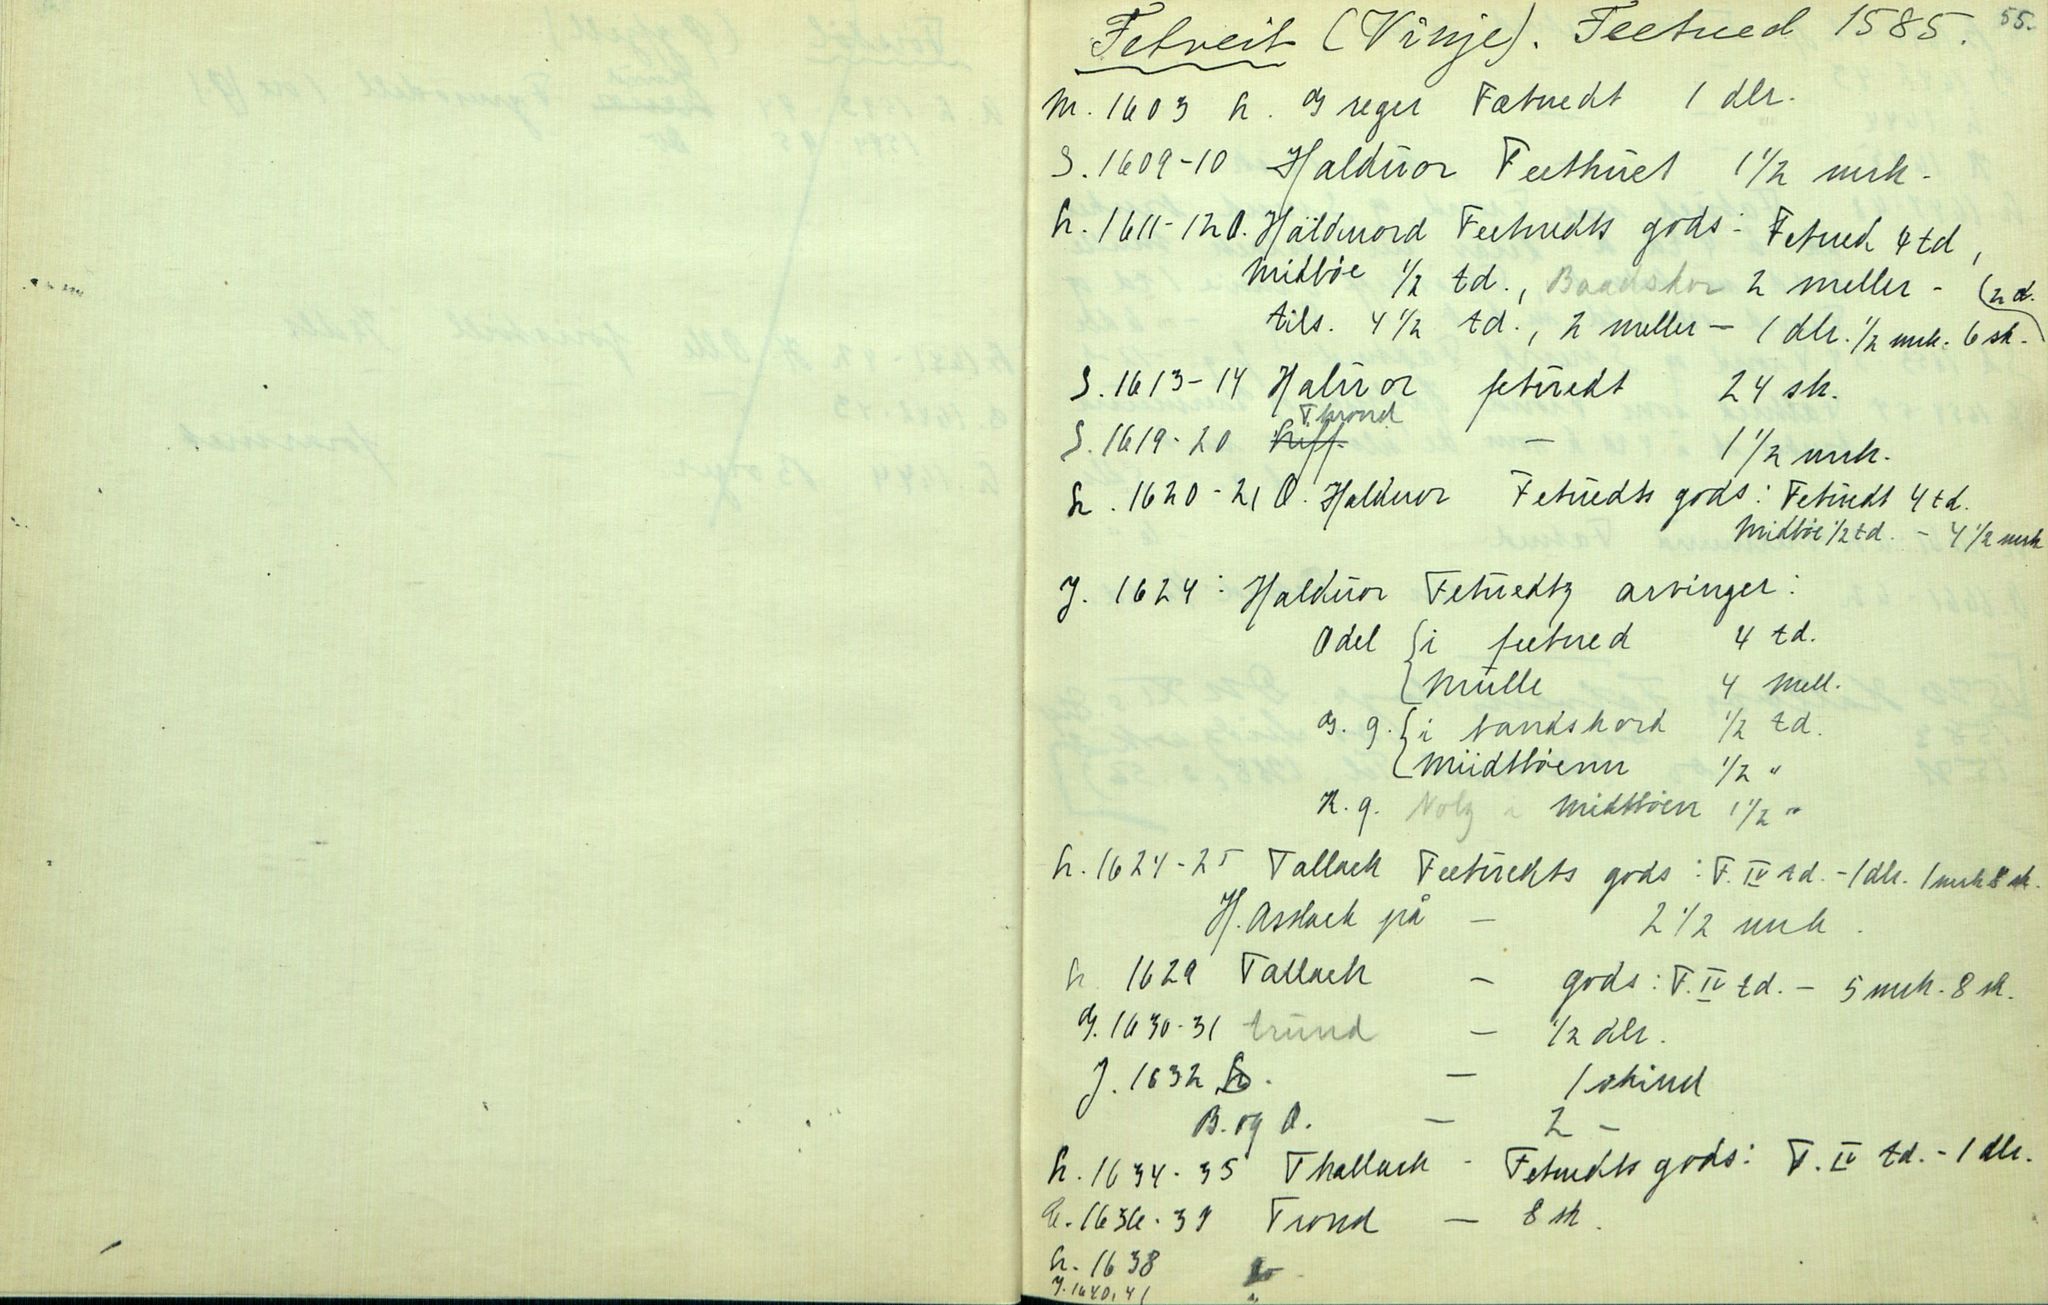 55.
Fetveit (Vinje). Feetued 1585.
M. 1603 h. Greger Fætuedt 1 dlr.
S. 1609-10 Halduor Feethuet 1 1/2 mrk.
h. 1611-12 O. Halduord Feetuedts gods: Fetued 4 td,
Midbøe 1/2 td., Baadskor 2 meller - (2 d.
tils. 4 1/2 td., 2 meller - 1 dlr. 1/2 mrk. 6 sk.
S. 1613-14 Haluor fetuedt 24 sk.
Thrond
S. 1619-20 — 1 1/2 mrk.
h. 1620-21 O. Halduor Fetuedts gods: Fetuedt 4 td.
Midbøe 1/2 td. - 4 1/2 mrk
J. 1624: Halduor Fetuedtz arvinger:
Odel { i feetued 4 td.
Mulle 4 mell.
B. g. { i bandskord 1/2 td.
Miidtbøenn 1/2 "
K. g. i Midtbøen 1 1/2 "
h. 1624-25 Tallack Feetuedts gods: F. IV td. - 1 dlr. 1 mrk 8 sk.
H. Asslack på — 2 1/2 mrk.
h. 1629 Tallack — gods: F. IV td. - 5 mrk. 8 sk.
G. 1630-31 trund — 1/2 dlr.
J. 1632 — 1 skind
B. og O. — 2 —
h. 1634-35 Thallack - Fetuedts gods: F. IV td. - 1 dlr.
1636-37 Trond — 8 sk.
h. 1638
J. 1640, 41 "